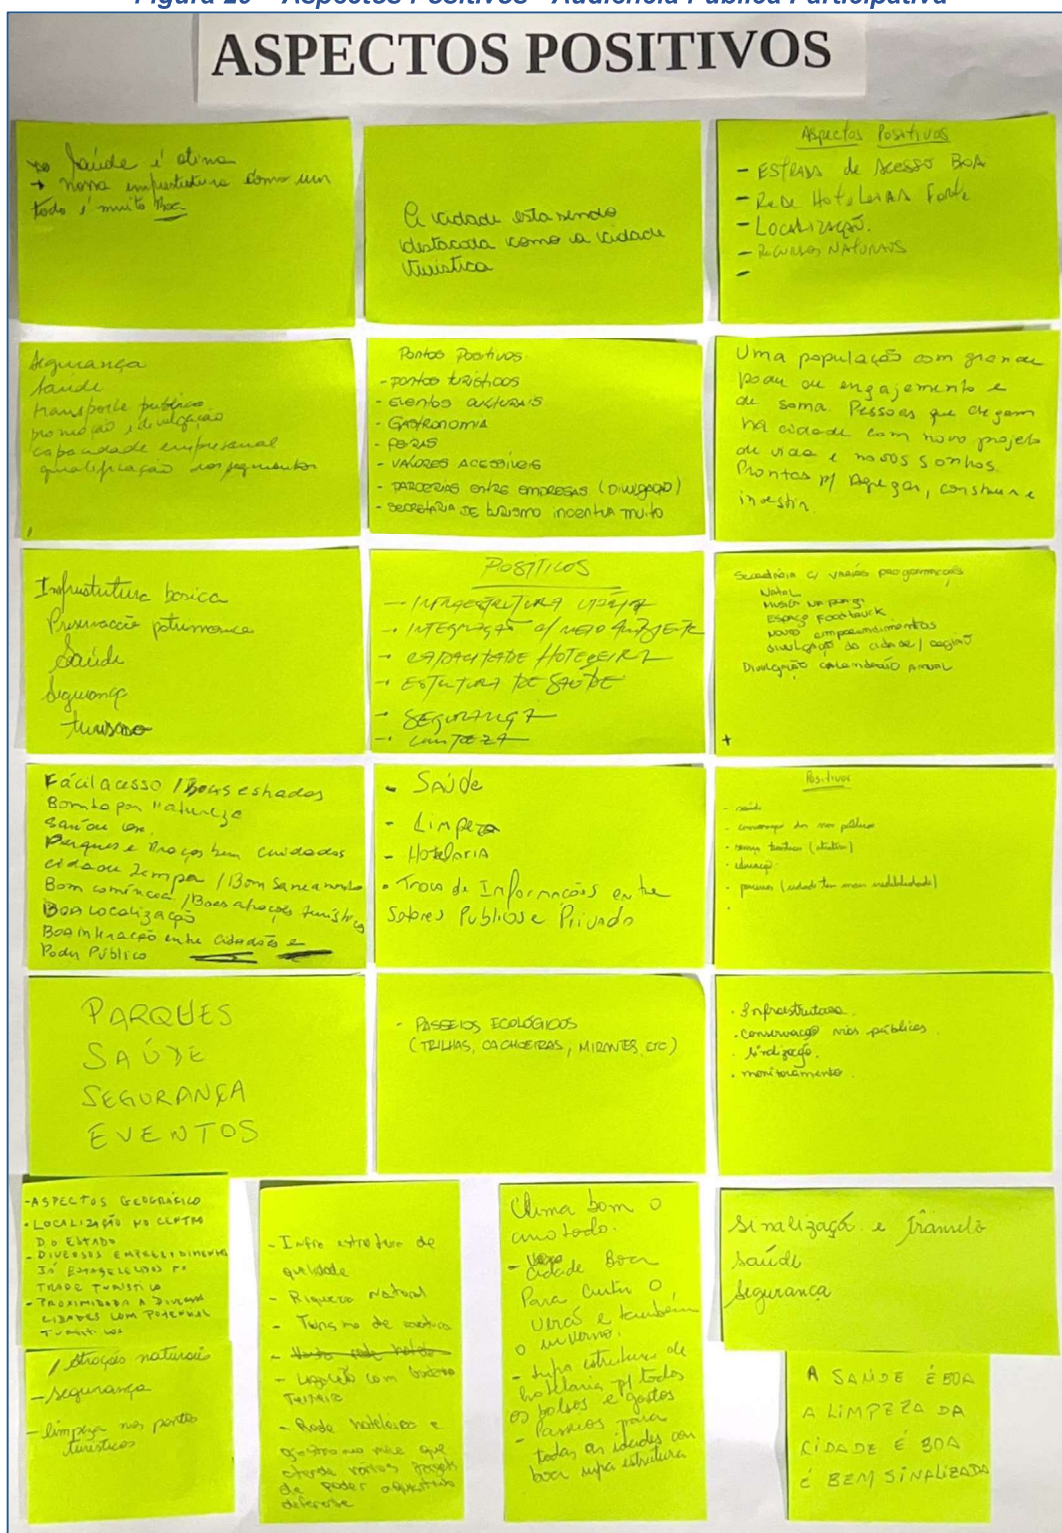 Figura 20 - Aspectos Positivos - Audiência Pública Participativa
ASPECTOS POSITIVOS
Saúde é otima
→ nossa como um
todo é muito Boa
A cidade esta sendo
destacada como a cidade
turistica
Aspectos Positivos
- ESTRADA de Acesso BOA
- Rede Hoteleira Forte
- Localização.
- Recursos Naturais
-
Segurança
Saude
transporte público
promoção e divulgação
capacidade empresarial
qualificação dos segmentos
Pontos Positivos
- pontos turísticos
- Eventos culturais
- Gastronomia
- Feiras
- Valores acessíveis
- Parcerias entre empresas (Divulgação)
- Secretaria de turismo incentiva muito
Uma população com grande
poder de engajamento e
de soma. Pessoas que chegam
na cidade com novo projeto
de vida e novos sonhos.
Prontas p/ Agregar, construir e
investir.
basica
Saúde
Segurança
turismo
POSITIVOS
- INTEGRAÇÃO c/ MEIO AMBIENTE
- CAPACIDADE HOTELEIRA
- ESTRUTURA DE SAÚDE
- SEGURANÇA
- LIMPEZA
Secretaria c/ varias programações
Natal
Musica na praça
Espaço Foodtruck
novos empreendimentos
divulgação da cidade / região
Divulgação calendario anual
+
Fácil acesso / Boas estradas
Bonito por natureza
Parques e Praças bem cuidados
cidade Limpa / Bom Saneamento
Bom comércio / Boas atrações turísticas
Boa localização
Boa interação entre cidadãos e
Poder Público
- Saúde
- Limpeza
- Hotelaria
- Troca de Informações entre
Setores Publicos e Privado
Positivos
- saúde
- conservação das vias públicas
- educação
PARQUES
SAÚDE
SEGURANÇA
EVENTOS
- PASSEIOS ECOLÓGICOS
(TRILHAS, CACHOEIRAS, MIRANTES, ETC)
· Infraestrutura.
· conservação vias públicas.
· sinalização.
· monitoramento.
- ASPECTOS GEOGRÁFICO
- LOCALIZAÇÃO NO CENTRO
DO ESTADO
- DIVERSOS EMPREENDIMENTOS
JÁ ESTABELECIDOS NO
TRADE TURISTICO
- PROXIMIDADE A DIVERSAS
CIDADES COM POTENCIAL
TURISTICO
- Infra estrutura de
qualidade
- Riqueza Natural
- Turismo de aventura
- Ligação com
- Rede hoteleira e
gastronomica que
atende vários
de poder aquisitivo
diferente
Clima bom o
ano todo.
- cidade Boa
Para Curtir o
verão e também
o inverno.
- infra estrutura de
hotelaria p/ todos
os bolsos e gostos
- Passeios para
todas as idades com
boa infra estrutura
Sinalização e Trânsito
Saúde
Segurança
Atrações naturais
- Segurança
- limpeza nos pontos
turísticos
A SAUDE É BOA
A LIMPEZA DA
CIDADE É BOA
É BEM SINALIZADA